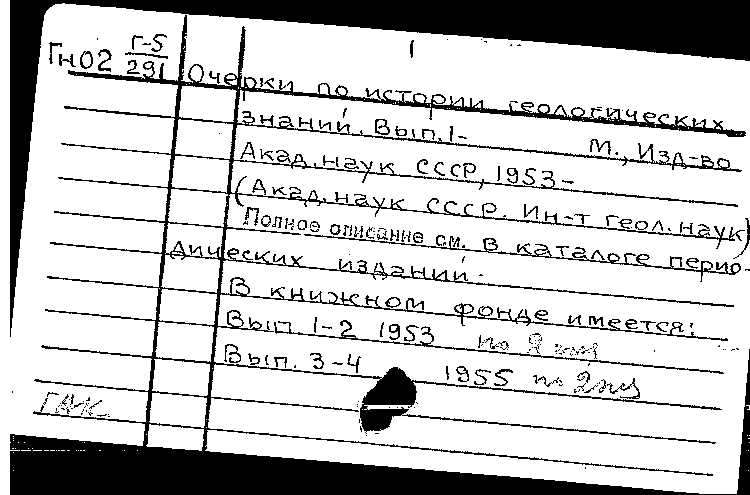 1
Гн02 Г-5/291
Очерки по истории геологических
знаний. Вып.1- М., Изд-во
Акад.наук СССР, 1953-
(Акад.наук СССР. Ин-т геол.наук)
Полное описание см. в каталоге перио-
дических изданий.
В книжном фонде имеется:
Вып. 1-2 1953 по 2 экз
Вып. 3-4 1955 по 2 экз